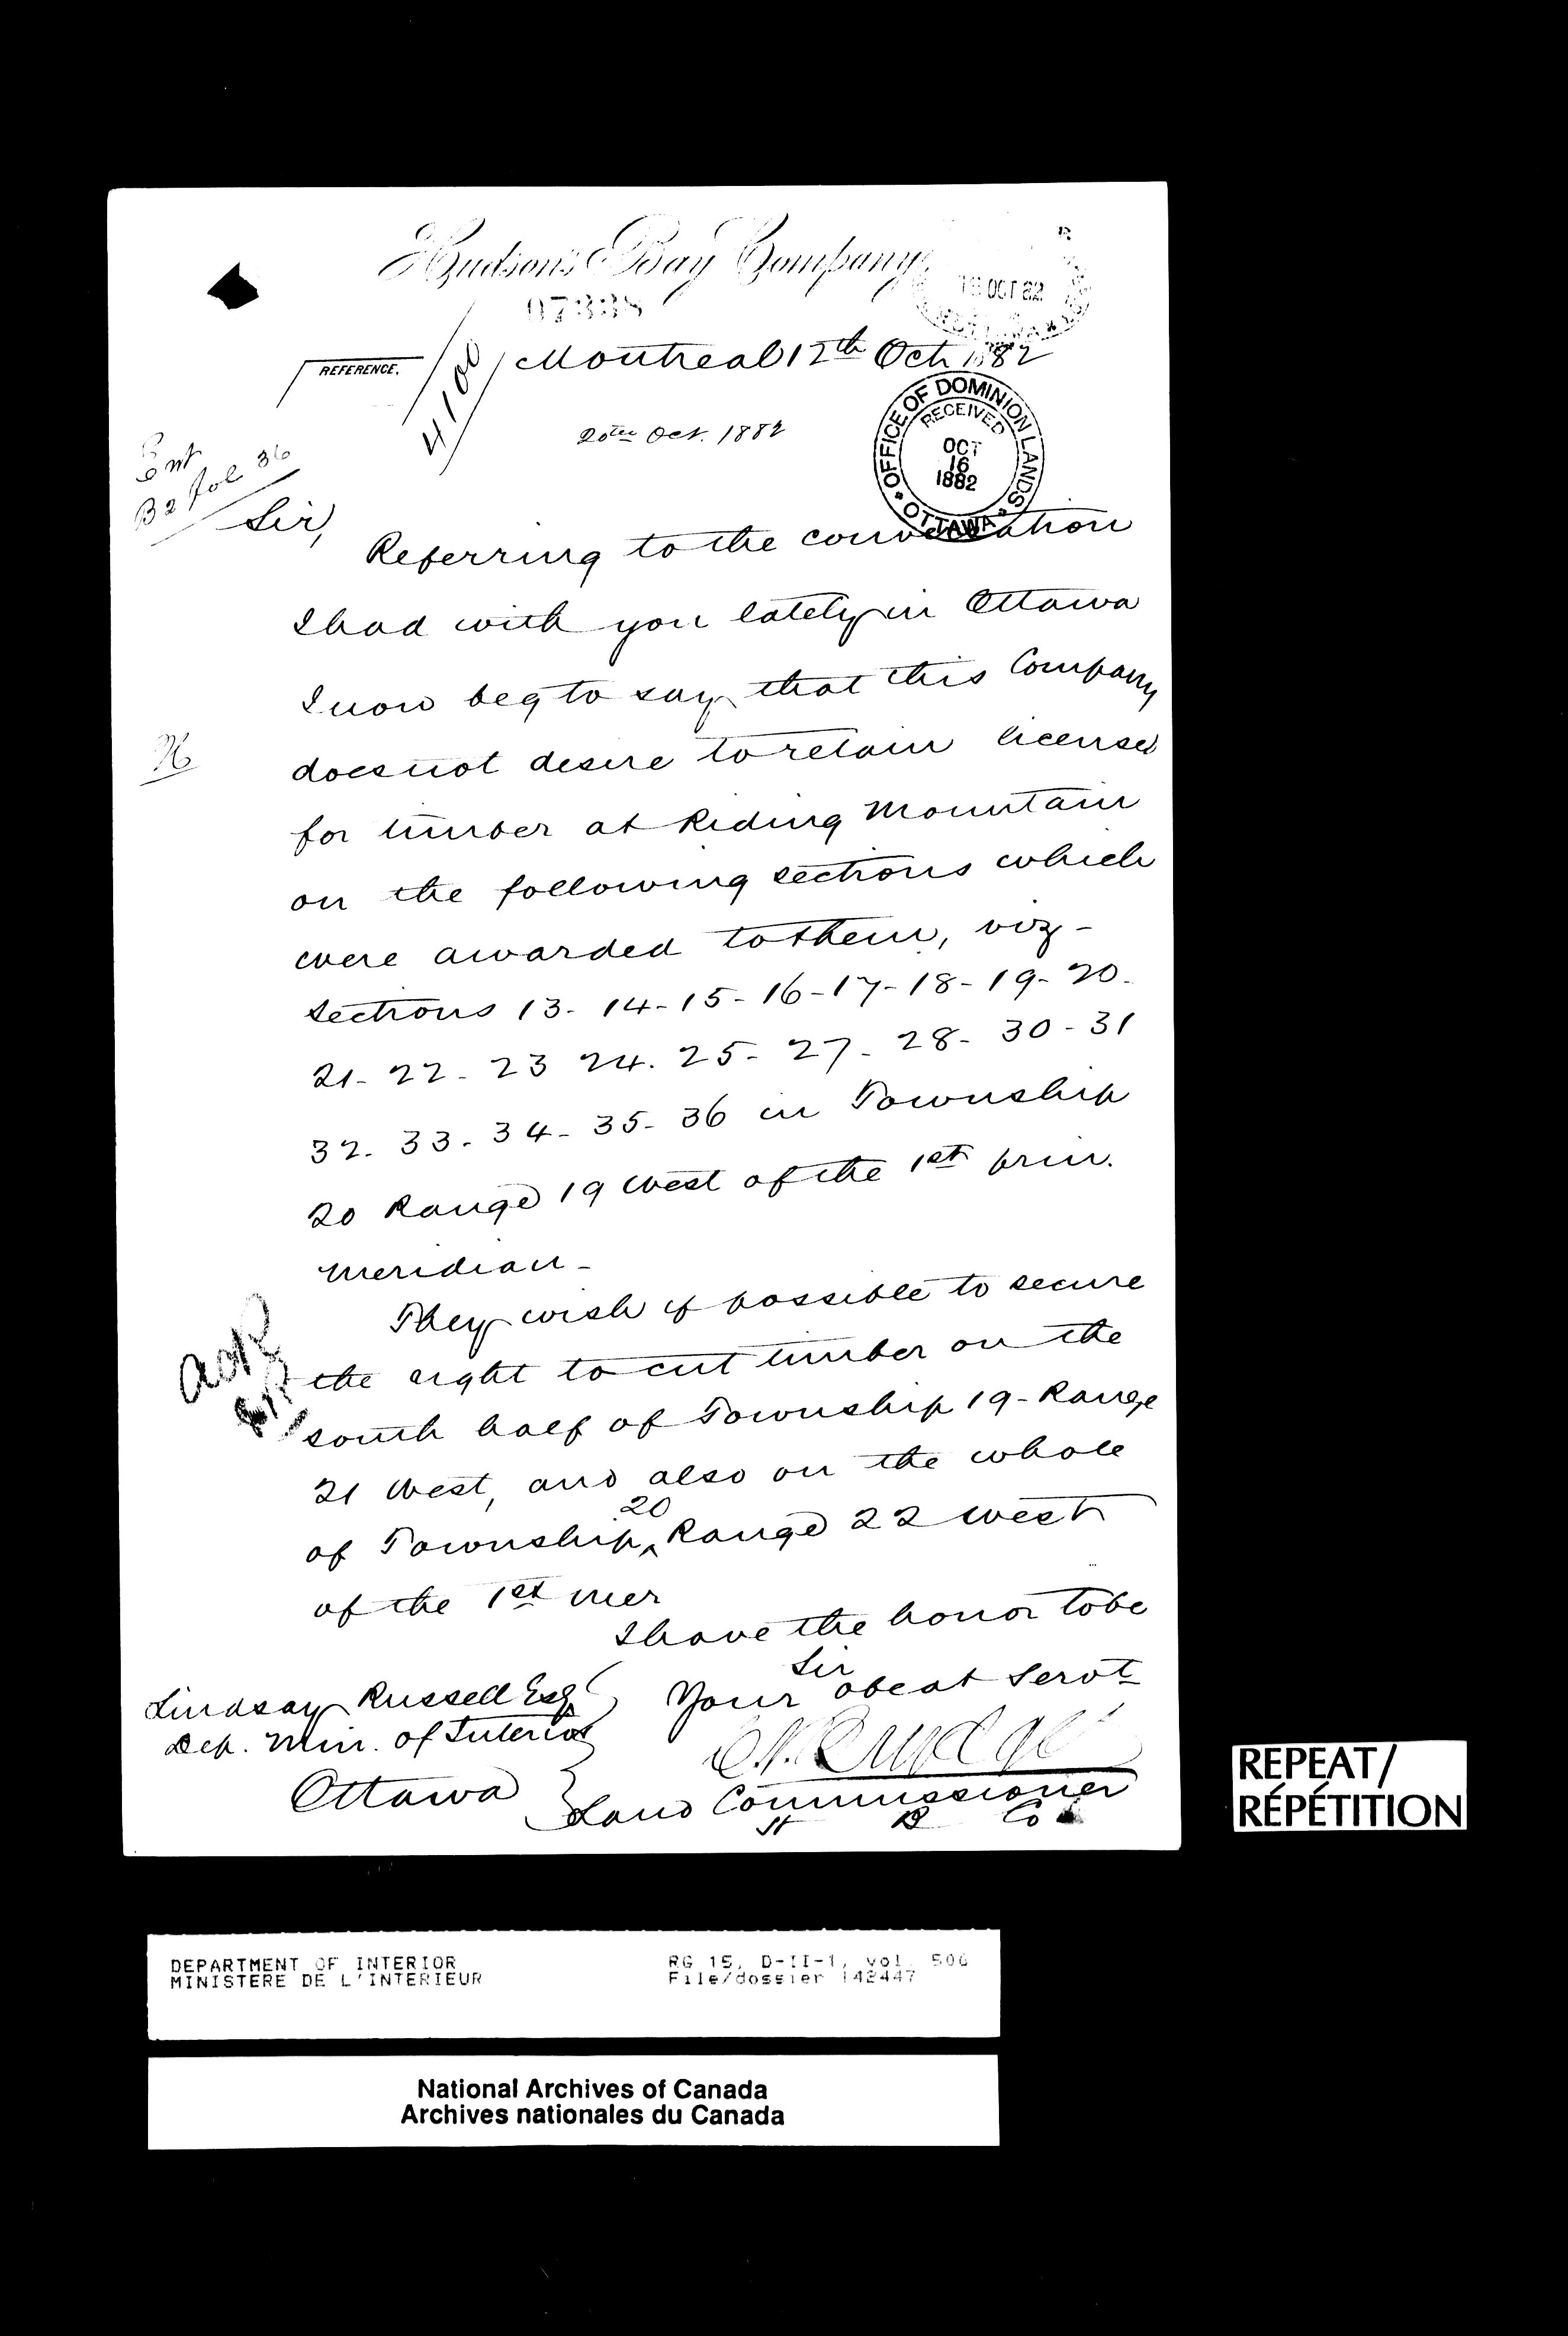 Hudson's Bay Company
07338
OCT 82
REFERENCE.
4100
Montreal 12th Oct 1882
20th Oct. 1882
OFFICE OF DOMINION LANDS
RECEIVED
OCT
16
1882
OTTAWA
Ent
B2 fol 36
Sir,
Referring to the conversation
I had with you lately in Ottawa
I now beg to say that this Company
does not desire to retain licenses
for timber at Riding Mountain
on the following sections which
were awarded to them, viz -
Sections 13- 14- 15- 16- 17- 18- 19- 20-
21- 22- 23 24. 25- 27- 28- 30- 31
32- 33- 34- 35- 36 in Township
20 Range 19 West of the 1st prin.
Meridian -
They wish if possible to secure
the right to cut timber on the
south half of Township 19 - Range
21 West, and also on the whole
of Township 20 Range 22 West
of the 1st mer
I have the honor to be
Sir
Your obeat Servt
Land Commissioner
H B Co
Lindsay Russell Esq
Dep. Min. of Interior
Ottawa
REPEAT/
RÉPÉTITION
DEPARTMENT OF INTERIOR RG 15, D-II-1, vol. 506
MINISTERE DE L'INTERIEUR File/dossier 142447
National Archives of Canada
Archives nationales du Canada